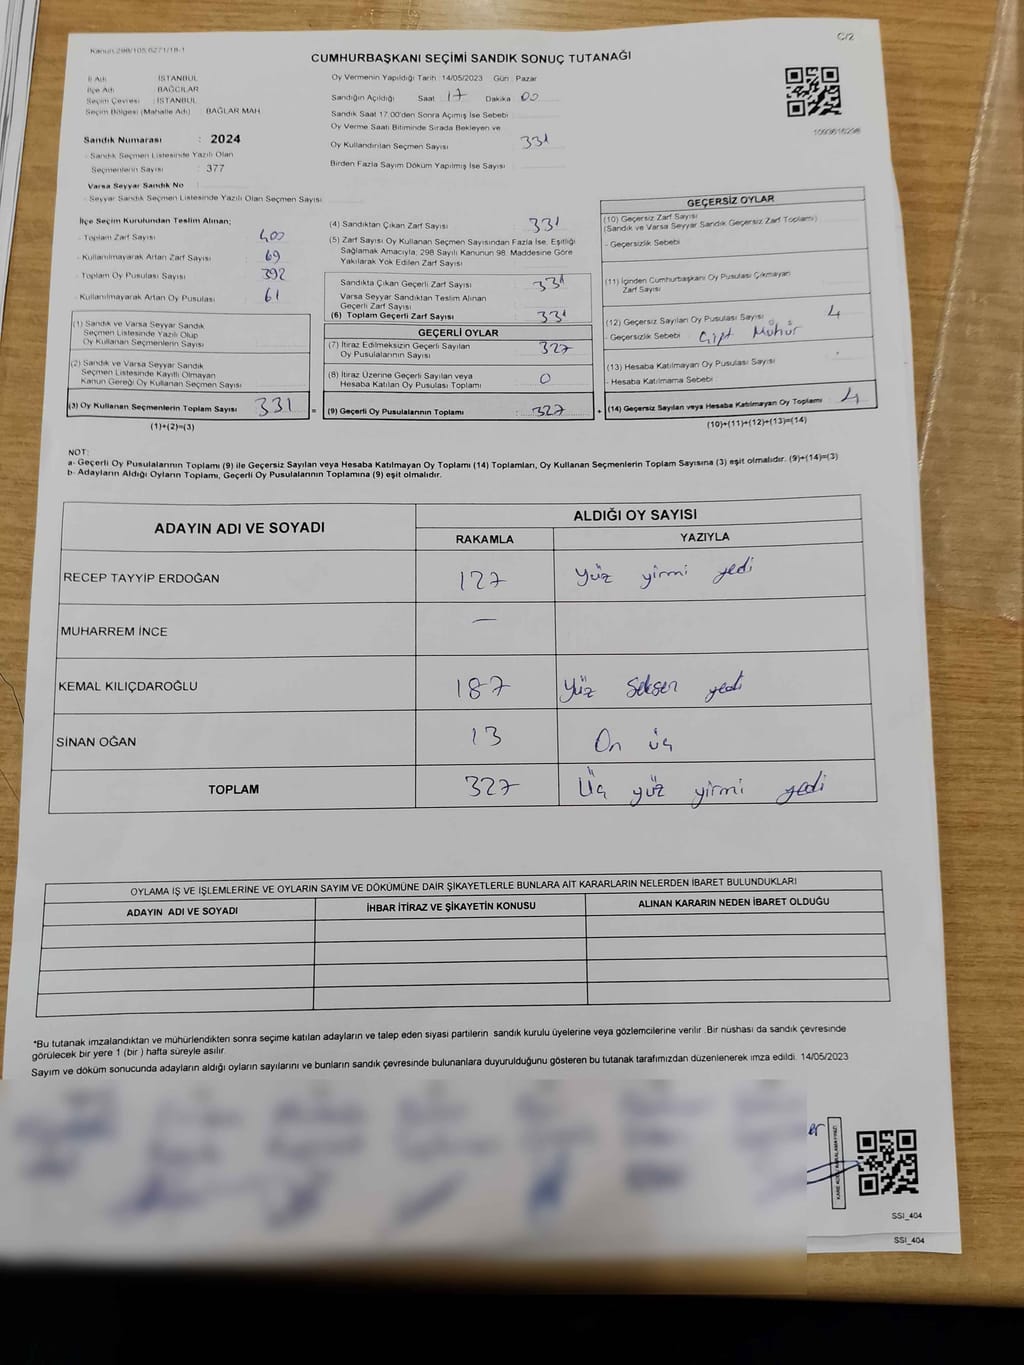 Kanun:298/105,6271/18-1
C/2
CUMHURBAŞKANI SEÇİMİ SANDIK SONUÇ TUTANAĞI
İl Adı : İSTANBUL
İlçe Adı : BAĞCILAR
Seçim Çevresi : İSTANBUL
Seçim Bölgesi (Mahalle Adı) : BAĞLAR MAH
Sandık Numarası : 2024
- Sandık Seçmen Listesinde Yazılı Olan
Seçmenlerin Sayısı : 377
Varsa Seyyar Sandık No :
- Seyyar Sandık Seçmen Listesinde Yazılı Olan Seçmen Sayısı
Oy Vermenin Yapıldığı Tarih :14/05/2023 Gün : Pazar
Sandığın Açıldığı Saat 17 Dakika 00
Sandık Saat 17.00'den Sonra Açımış İse Sebebi
Oy Verme Saati Bitiminde Sırada Bekleyen ve
Oy Kullandırılan Seçmen Sayısı 331
Birden Fazla Sayım Döküm Yapılmış İse Sayısı
1093616298
İlçe Seçim Kurulundan Teslim Alınan;
- Toplam Zarf Sayısı 400
- Kullanılmayarak Artan Zarf Sayısı 69
- Toplam Oy Pusulası Sayısı 392
- Kullanılmayarak Artan Oy Pusulası 61
(1) Sandık ve Varsa Seyyar Sandık
Seçmen Listesinde Yazılı Olup
Oy Kullanan Seçmenlerin Sayısı
(2) Sandık ve Varsa Seyyar Sandık
Seçmen Listesinde Kayıtlı Olmayan
Kanun Gereği Oy Kullanan Seçmen Sayısı
(3) Oy Kullanan Seçmenlerin Toplam Sayısı 331 =
(1)+(2)=(3)
(4) Sandıktan Çıkan Zarf Sayısı 331
(5) Zarf Sayısı Oy Kullanan Seçmen Sayısından Fazla İse, Eşitliği
Sağlamak Amacıyla; 298 Sayılı Kanunun 98. Maddesine Göre
Yakılarak Yok Edilen Zarf Sayısı
Sandıkta Çıkan Geçerli Zarf Sayısı 331
Varsa Seyyar Sandıktan Teslim Alınan
Geçerli Zarf Sayısı
(6) Toplam Geçerli Zarf Sayısı 331
GEÇERLİ OYLAR
(7) İtiraz Edilmeksizin Geçerli Sayılan
Oy Pusulalarının Sayısı 327
(8) İtiraz Üzerine Geçerli Sayılan veya
Hesaba Katılan Oy Pusulası Toplamı 0
(9) Geçerli Oy Pusulalarının Toplamı : 327 +
GEÇERSİZ OYLAR
(10) Geçersiz Zarf Sayısı
(Sandık ve Varsa Seyyar Sandık Geçersiz Zarf Toplamı)
- Geçersizlik Sebebi
(11) İçinden Cumhurbaşkanı Oy Pusulası Çıkmayan
Zarf Sayısı
(12) Geçersiz Sayılan Oy Pusulası Sayısı 4
- Geçersizlik Sebebi Çift Mühür
(13) Hesaba Katılmayan Oy Pusulası Sayısı
- Hesaba Katılmama Sebebi
(14) Geçersiz Sayılan veya Hesaba Katılmayan Oy Toplamı 4
(10)+(11)+(12)+(13)=(14)
NOT:
a- Geçerli Oy Pusulalarının Toplamı (9) ile Geçersiz Sayılan veya Hesaba Katılmayan Oy Toplamı (14) Toplamları, Oy Kullanan Seçmenlerin Toplam Sayısına (3) eşit olmalıdır. (9)+(14)=(3)
b- Adayların Aldığı Oyların Toplamı, Geçerli Oy Pusulalarının Toplamına (9) eşit olmalıdır.
ADAYIN ADI VE SOYADI
ALDIĞI OY SAYISI
RAKAMLA YAZIYLA
RECEP TAYYİP ERDOĞAN 127 Yüz yirmi yedi
MUHARREM İNCE —
KEMAL KILIÇDAROĞLU 187 Yüz Seksen yedi
SİNAN OĞAN 13 On üç
TOPLAM 327 Üç yüz yirmi yedi
OYLAMA İŞ VE İŞLEMLERİNE VE OYLARIN SAYIM VE DÖKÜMÜNE DAİR ŞİKAYETLERLE BUNLARA AİT KARARLARIN NELERDEN İBARET BULUNDUKLARI
ADAYIN ADI VE SOYADI İHBAR İTİRAZ VE ŞİKAYETİN KONUSU ALINAN KARARIN NEDEN İBARET OLDUĞU
*Bu tutanak imzalandıktan ve mühürlendikten sonra seçime katılan adayların ve talep eden siyasi partilerin sandık kurulu üyelerine veya gözlemcilerine verilir .Bir nüshası da sandık çevresinde
görülecek bir yere 1 (bir ) hafta süreyle asılır.
Sayım ve döküm sonucunda adayların aldığı oyların sayılarını ve bunların sandık çevresinde bulunanlara duyurulduğunu gösteren bu tutanak tarafımızdan düzenlenerek imza edildi. 14/05/2023
er
SSI_404
SSI_404